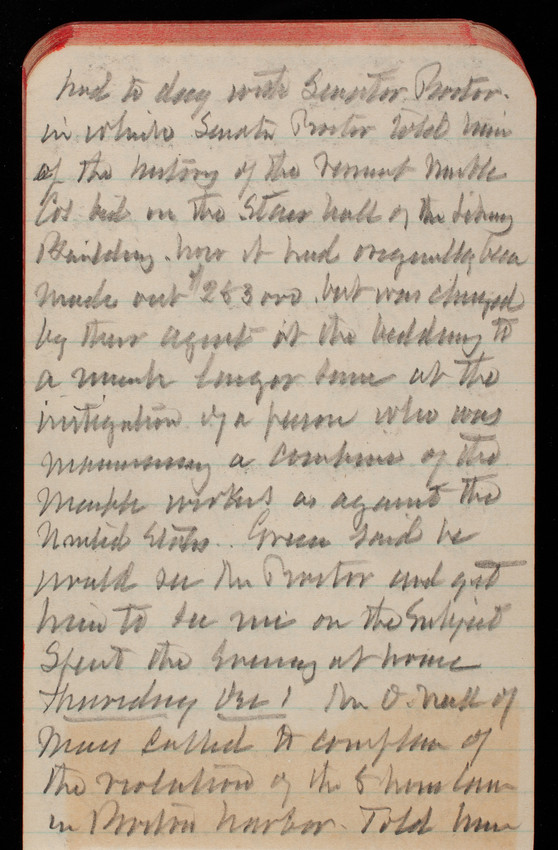 had to day with Senator Proctor.
in which Senator Proctor told him
of the history of the Vermont Marble
Cos bid on the Stair hall of the Library
Building. how it had originally been
made out $283000. but was changed
by their agent at the bedding to
a much larger sum at the
instigation of a person who was
a combine of the
Marble workers as against the
United States. Green said he
would see Mr Proctor and get
him to see me on the subject
Spent the Evening at home
Thursday Dec 1 Mr O. Neill of
Mass called to complain of
the violation of the 8 hour law
in Boston harbor. Told him